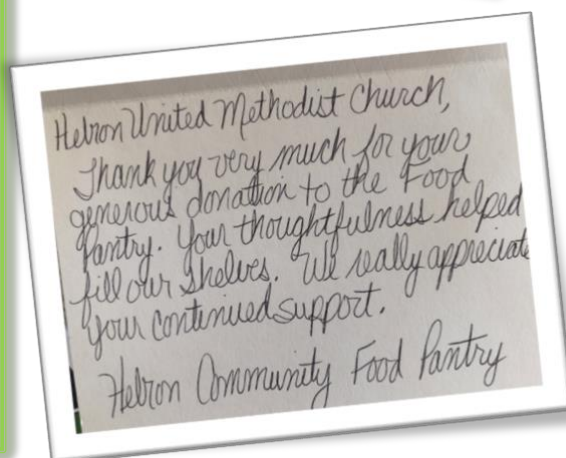 Hebron United Methodist Church,
Thank you very much for your
generous donation to the Food
Pantry. Your thoughtfulness helped
fill our shelves. We really appreciate
your continued support.
Hebron Community Food Pantry